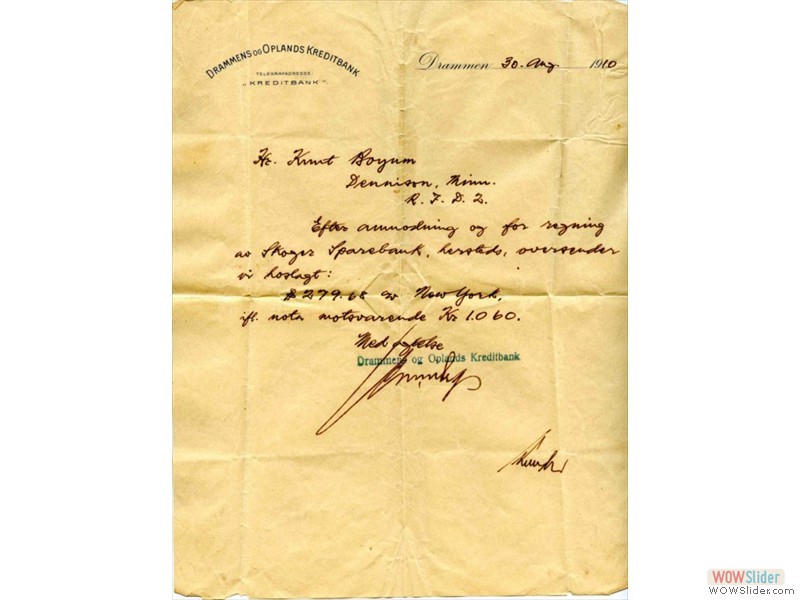 DRAMMENS OG OPLANDS KREDITBANK
TELEGRAFADRESSE:
„KREDITBANK“.
Drammen 30. Aug 1910
Hr. Knut Boyum
Dennison, Minn.
R. F. D. 2.
Efter anmodning og for regning
av Skoger Sparebank, hersteds, oversender
vi hoslagt:
$ 279.68 av New York,
ifl. nota motsvarende Kr. 1060.
Med agtelse
Drammens og Oplands Kreditbank
WOWSlider
WOWSlider.com